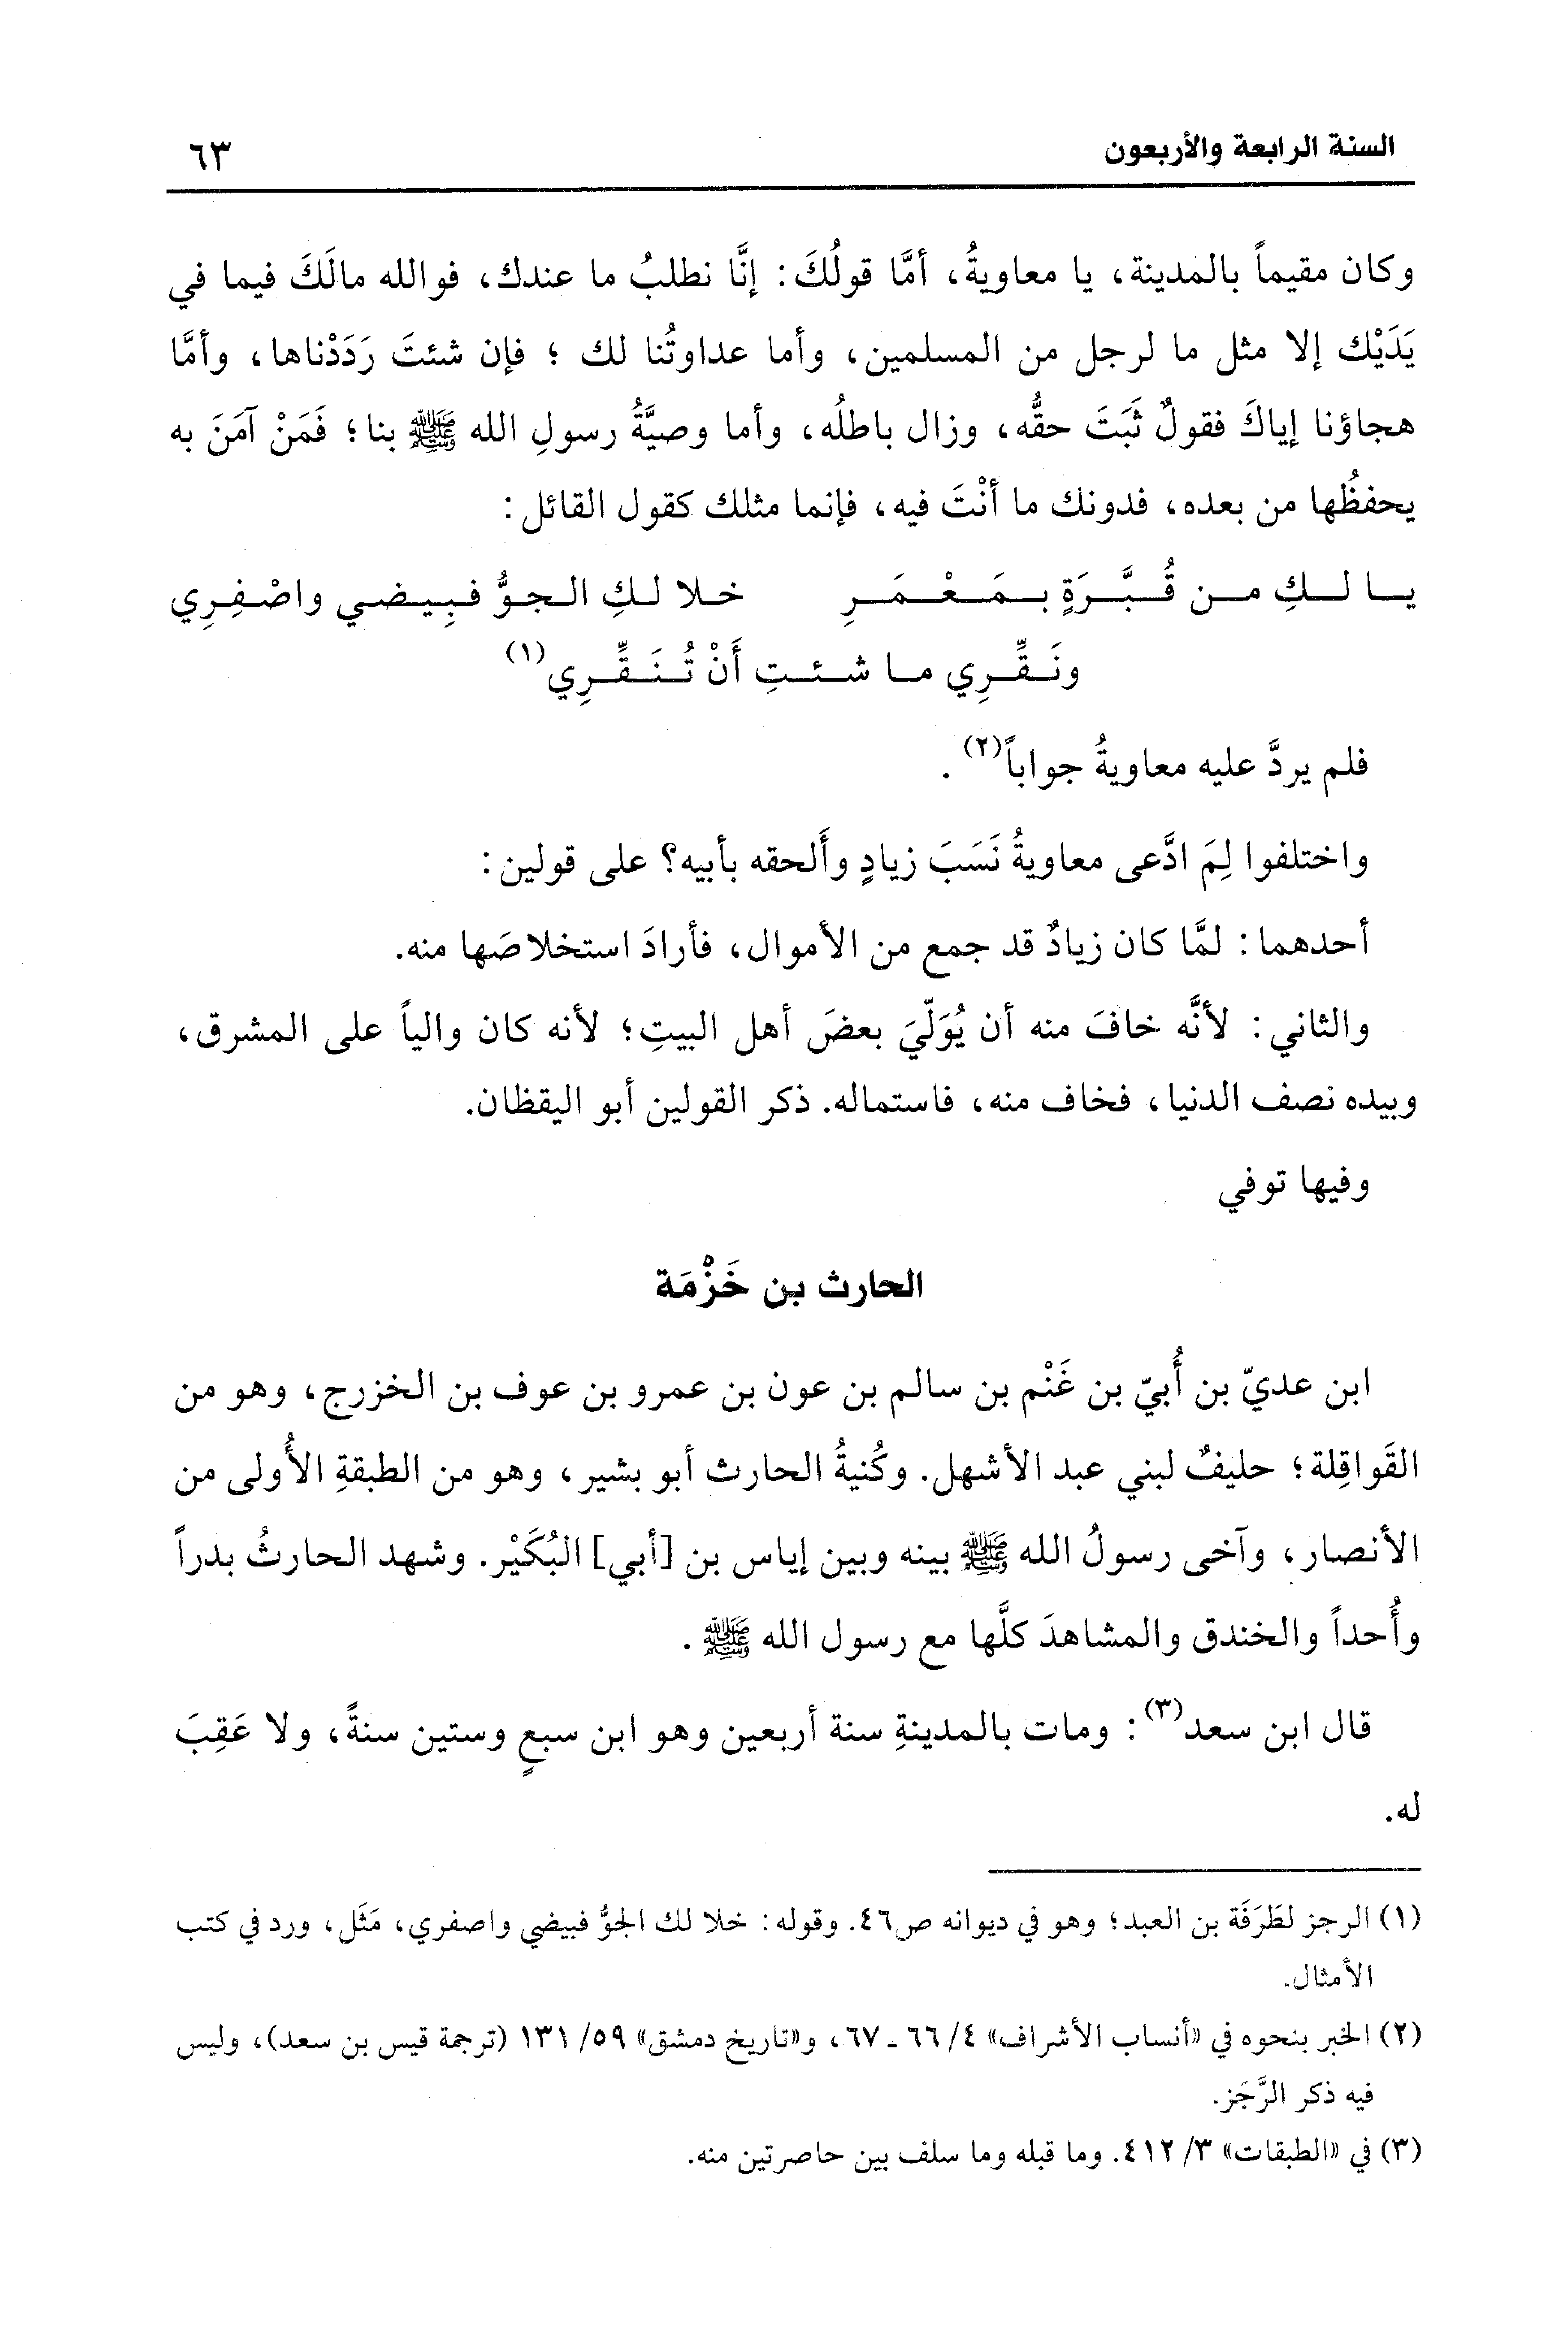 السنة الرابعة والأربعون ٦٣
وكان مقيماً بالمدينة، يا معاويةُ، أمَّا قولُكَ: إنَّا نطلبُ ما عندك، فوالله مالَكَ فيما في
يَدَيْك إلا مثل ما لرجل من المسلمين، وأما عداوتُنا لك ؛ فإن شئتَ رَدَدْناها، وأمَّا
هجاؤنا إياكَ فقولٌ ثَبَتَ حقُّه، وزال باطلُه، وأما وصيَّةُ رسولِ الله ﷺ بنا؛ فَمَنْ آمَنَ به
يحفظُها من بعده، فدونك ما أنْتَ فيه، فإنما مثلك كقول القائل:
يا لكِ من قُبَّرَةٍ بمَعْمَرِ خلا لكِ الجوُّ فبِيضي واصْفِرِي
ونَقِّرِي ما شئتِ أَنْ تُنَقِّرِي(١)
فلم يردَّ عليه معاويةُ جواباً(٢) .
واختلفوا لِمَ ادَّعى معاويةُ نَسَبَ زيادٍ وأَلحقه بأبيه؟ على قولين:
أحدهما: لمَّا كان زيادٌ قد جمع من الأموال، فأرادَ استخلاصَها منه.
والثاني: لأنَّه خافَ منه أن يُوَلّيَ بعضَ أهل البيتِ؛ لأنه كان والياً على المشرق،
وبيده نصف الدنيا، فخاف منه، فاستماله. ذكر القولين أبو اليقظان.
وفيها توفي
الحارث بن خَزْمَة
ابن عديّ بن أُبيّ بن غَنْم بن سالم بن عون بن عمرو بن عوف بن الخزرج، وهو من
القَواقِلة؛ حليفٌ لبني عبد الأشهل. وكُنيةُ الحارث أبو بشير، وهو من الطبقةِ الأُولى من
الأنصار، وآخى رسولُ الله ﷺ بينه وبين إياس بن [أبي] البُكَيْر. وشهد الحارثُ بدراً
وأُحداً والخندق والمشاهدَ كلَّها مع رسول الله ﷺ .
قال ابن سعد(٣): ومات بالمدينةِ سنة أربعين وهو ابن سبعٍ وستين سنةً، ولا عَقِبَ
له.
(١) الرجز لطَرَفَة بن العبد؛ وهو في ديوانه ص٤٦. وقوله: خلا لك الجوُّ فبيضي واصفري، مَثَل، ورد في كتب
الأمثال.
(٢) الخبر بنحوه في «أنساب الأشراف» ٤/ ٦٦ ـ ٦٧، و«تاريخ دمشق» ٥٩/ ١٣١ (ترجمة قيس بن سعد)، وليس
فيه ذكر الرَّجَز.
(٣) في «الطبقات» ٣/ ٤١٢. وما قبله وما سلف بين حاصرتين منه.